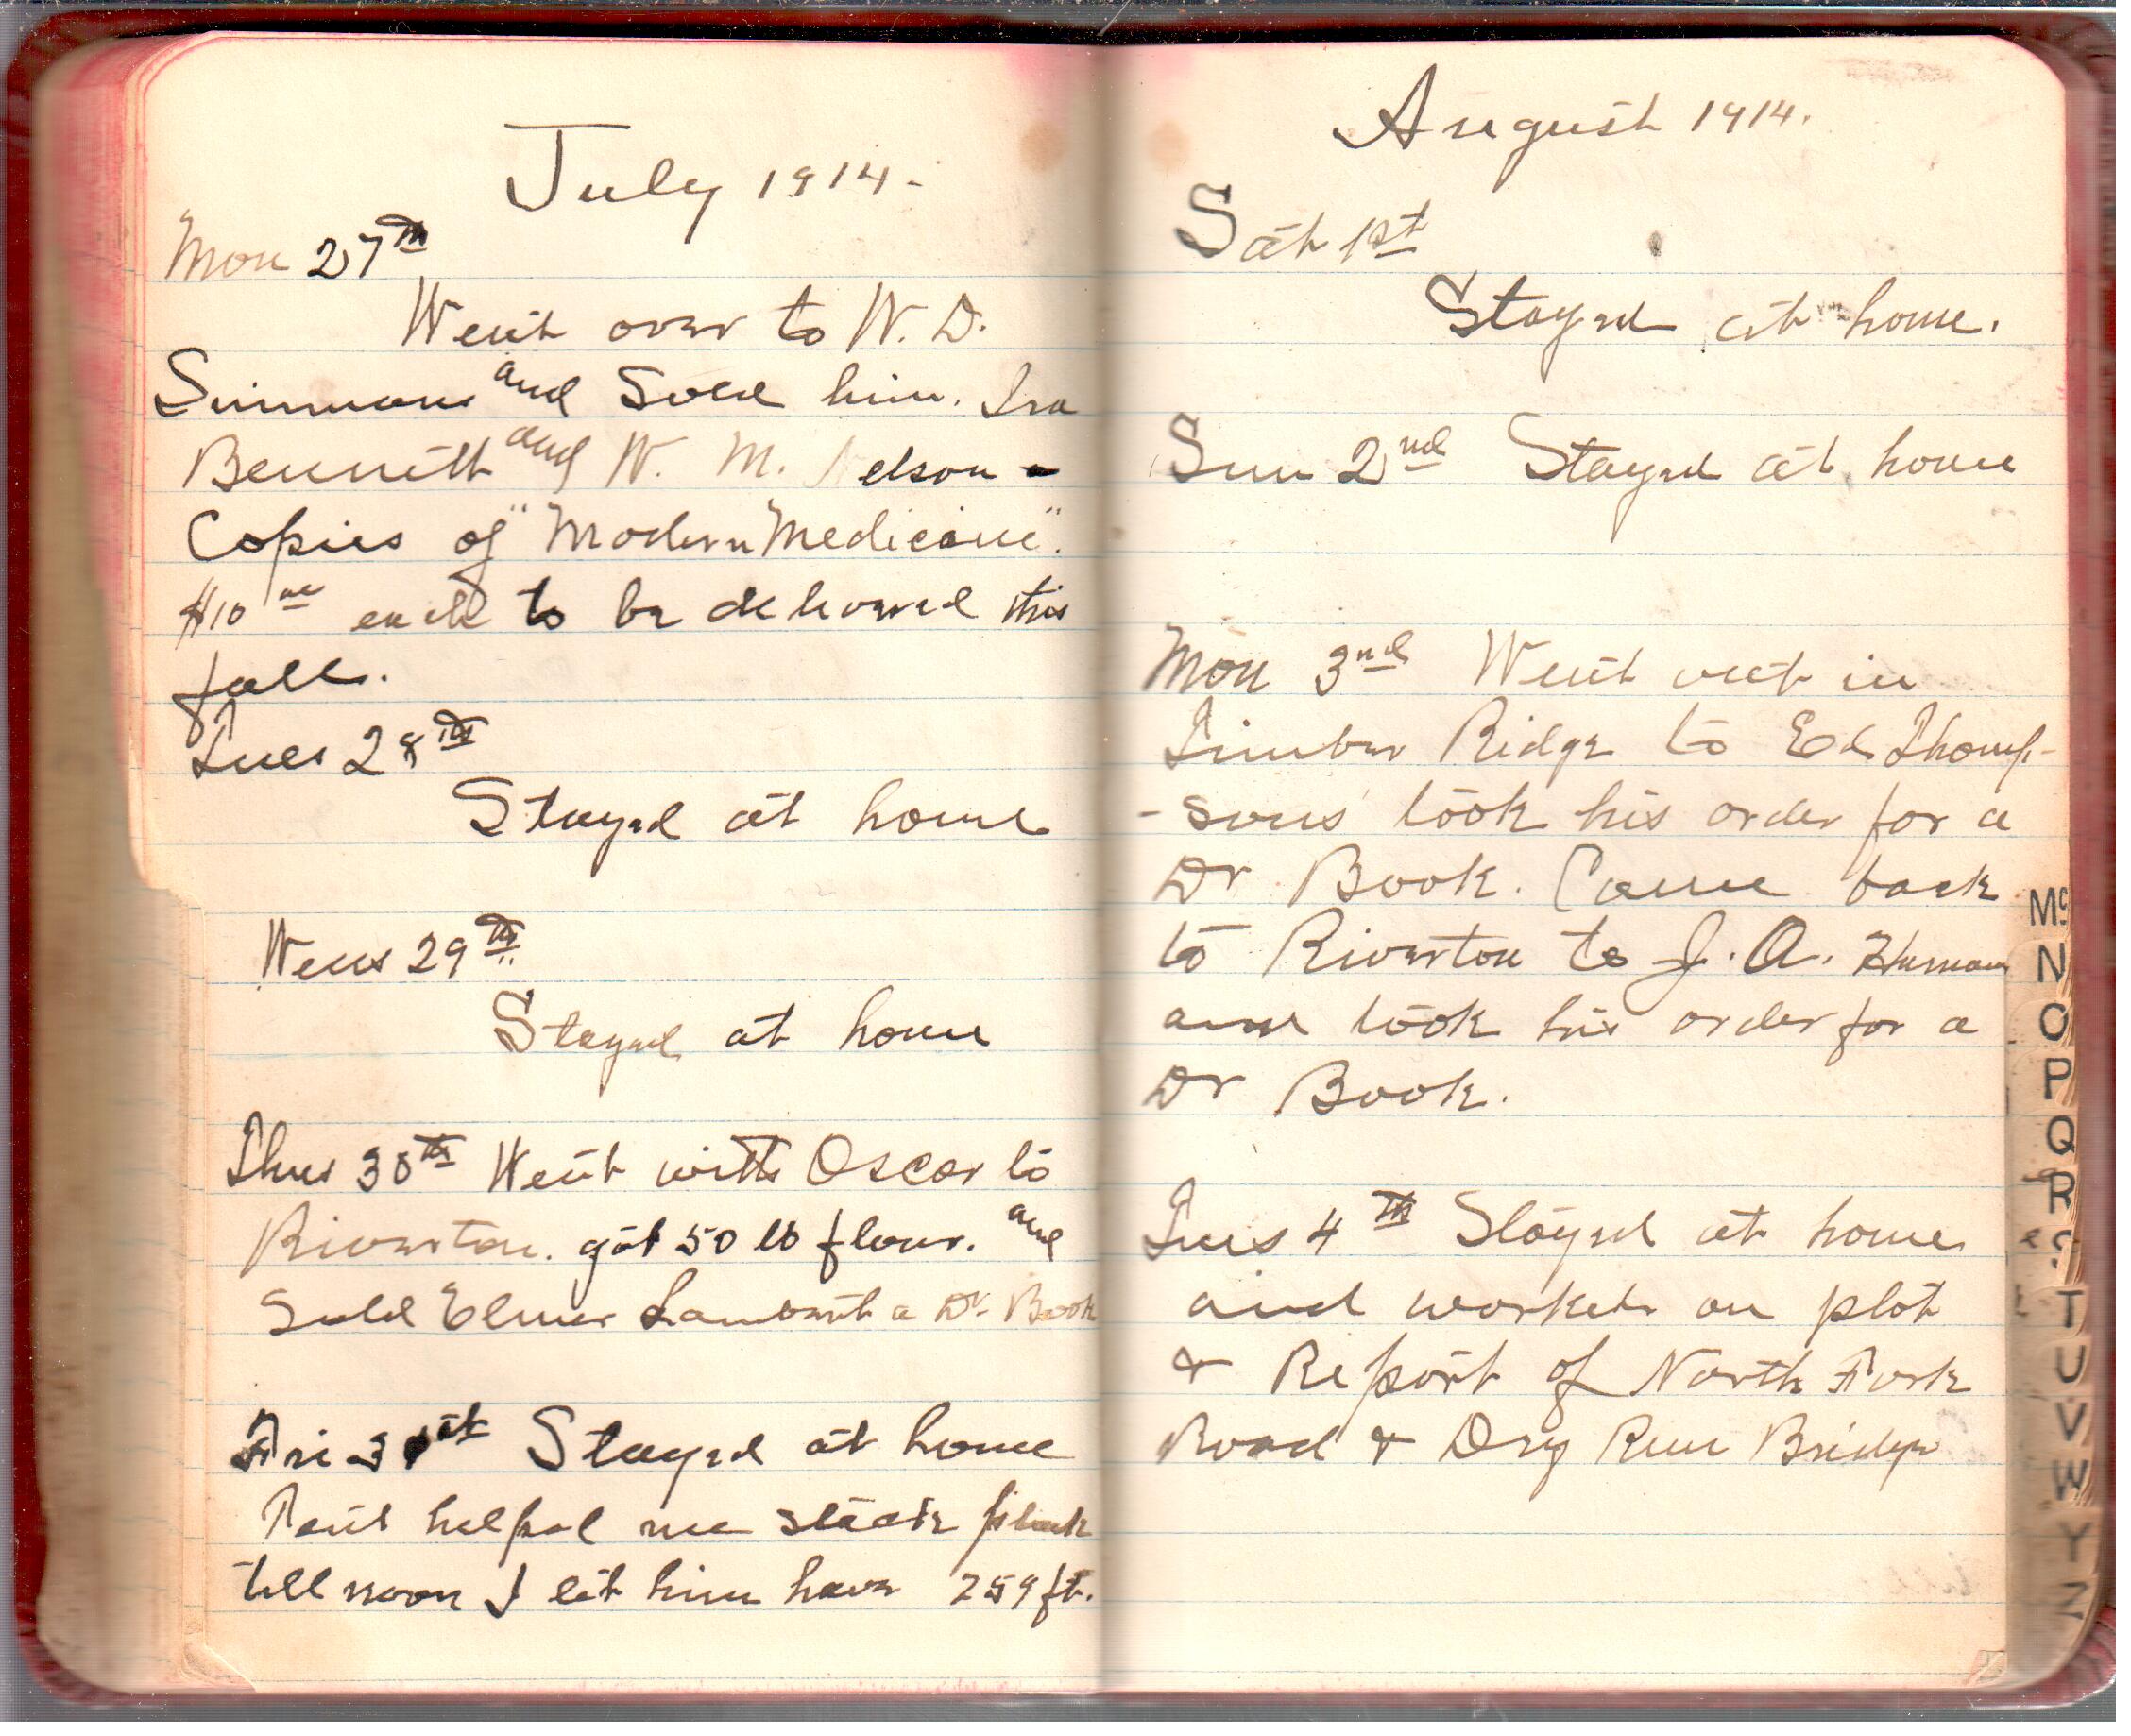 July 1914.
Mon 27th
Went over to W. D.
Simmons and Sold him. Ira
Bennett and W. M. Nelson
Copies of "Modern Medicine".
$10 each to be delivered this
fall.
Tues 28th
Stayed at home
Wens 29th
Stayed at home
Thus 30th Went with Oscar to
Riverton. got 50 lb flour. and
Sold Elmer Lambert a Dr. Book
Fri 31st Stayed at home
helped me stack
till noon I let him have 259 ft.
August 1914.
Sat 1st
Stayed at home.
Sun 2nd Stayed at home
Mon 3nd Went out in
Timber Ridge to Ed Thomp-
-sons took his order for a
Dr Book. Came back
to Riverton to J. A.
and took his order for a
Dr Book.
Tues 4th Stayed at home
and worked on plot
& Report of North Fork
Road & Dry Run Bridge
Mc
N
O
P
Q
R
S
T
U
V
W
Y
Z